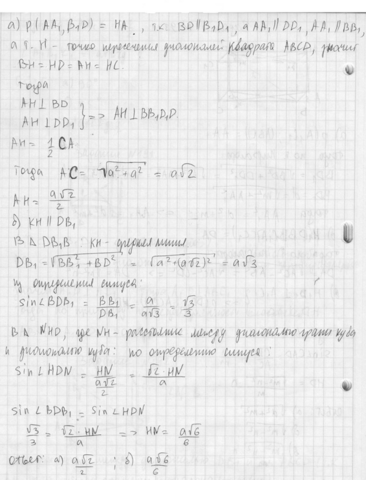 а) ρ(AA₁, B₁D) = HA, т.к. BD∥B₁D₁, а AA₁∥DD₁, AA₁∥BB₁,
а т. H - точка пересечения диагоналей квадрата ABCD, значит
BH = HD = AH = HC
тогда
AH⊥BD
AH⊥DD₁ } => AH⊥BB₁D₁D
AH = 1/2 CA
Тогда AC = √(a²+a²) = a√2
AH = a√2/2
б) KH∥DB₁
В Δ DB₁B: KH - средняя линия
DB₁ = √(BB₁²+BD²) = √(a²+(a√2)²) = a√3
из определения синуса:
sin∠BDB₁ = BB₁/DB₁ = a/(a√3) = √3/3
В Δ NHD, где NH - расстояние между диагональю грани куба
и диагональю куба: по определению синуса
sin∠HDN = HN/(a√2/2) = √2·HN/a
sin∠BDB₁ = sin∠HDN
√3/3 = √2·HN/a => HN = a√6/6
ответ: а) a√2/2 ; б) a√6/6